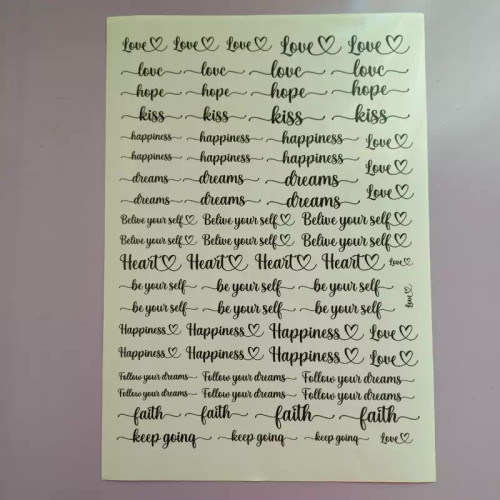 Love Love Love Love Love
love love love love
hope hope hope hope
kiss kiss kiss kiss
happiness happiness happiness Love
happiness happiness happiness
dreams dreams dreams Love
dreams dreams dreams Love
Belive your self Belive your self Belive your self
Belive your self Belive your self Belive your self
Heart Heart Heart Heart Love
be your self be your self be your self
be your self be your self be your self Love
Happiness Happiness Happiness Love
Happiness Happiness Happiness Love
Follow your dreams Follow your dreams Follow your dreams
Follow your dreams Follow your dreams Follow your dreams
faith faith faith faith
keep going keep going keep going Love